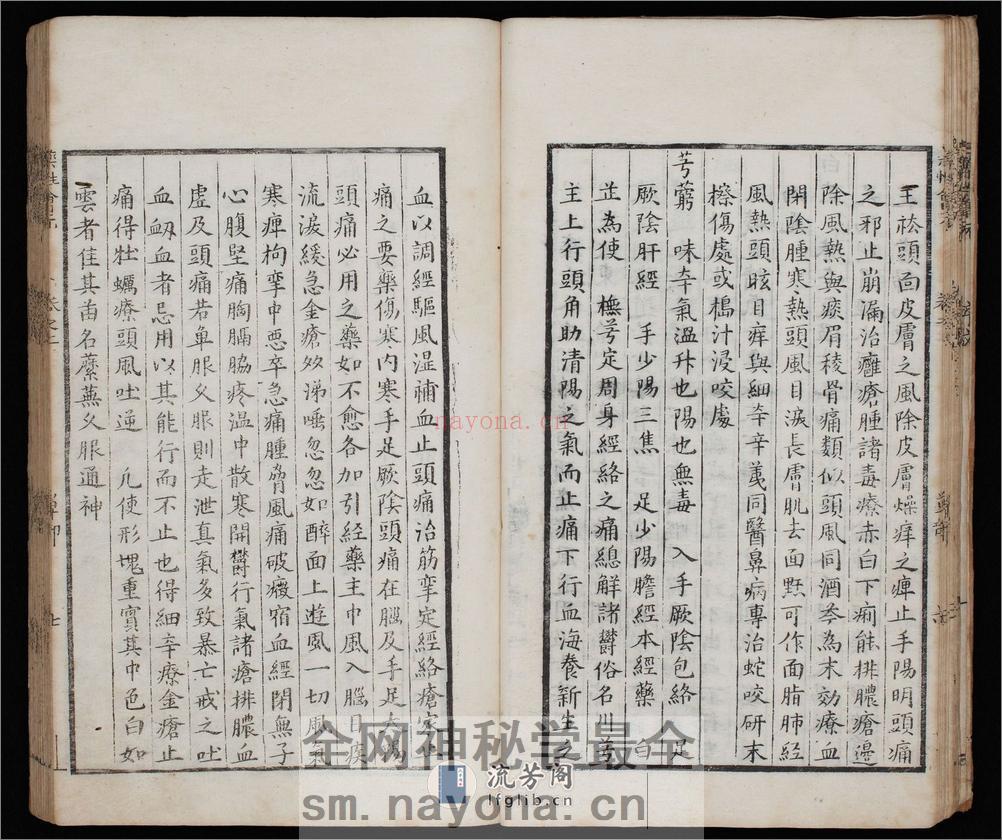 主祛頭面皮膚之風除皮膚燥痒之痺止手陽明頭痛
之邪止崩漏治癰瘡腫諸毒療赤白下痢能排膿瘡邊
除風熱與痰眉稜骨痛類似頭風同酒芩為末効療血
閉陰腫寒熱頭風目淚長膚肌去面䵟可作面脂肺經
風熱頭眩目痒與細辛辛荑同醫鼻病專治蛇咬研末
擦傷處或搗汁浸咬處
芎藭 味辛氣溫升也陽也無毒 入手厥陰包絡 足
厥陰肝經 手少陽三焦 足少陽膽經本經藥 白
芷為使 撫芎定周身經絡之痛總解諸欝俗名川芎
主上行頭角助清陽之氣而止痛下行血海養新生之
血以調經驅風濕補血止頭痛治筋攣定經絡瘡家止
痛之要藥傷寒內寒手足厥陰頭痛在腦及手足太陽
頭痛必用之藥如不愈各加引經藥主中風入腦目疾
流淚緩急金瘡多涕唾忽忽如醉面上遊風一切風氣
寒痺拘攣中悪卒急痛腫脅風痛破癥宿血經閉無子
心腹堅痛胸膈脇疼溫中散寒開欝行氣諸瘡排膿血
虛及頭痛若單服久服則走泄真氣多致暴亡戒之吐
血衂血者忌用以其能行而不止也得細辛療金瘡止
痛得牡蠣療頭風吐逆 凢使形塊重實其中色白如
雲者佳其苗名蘼蕪久服通神
nayona.com
全网神秘学最全
流芳阁
lfglib.cn
sm.nayona.cn